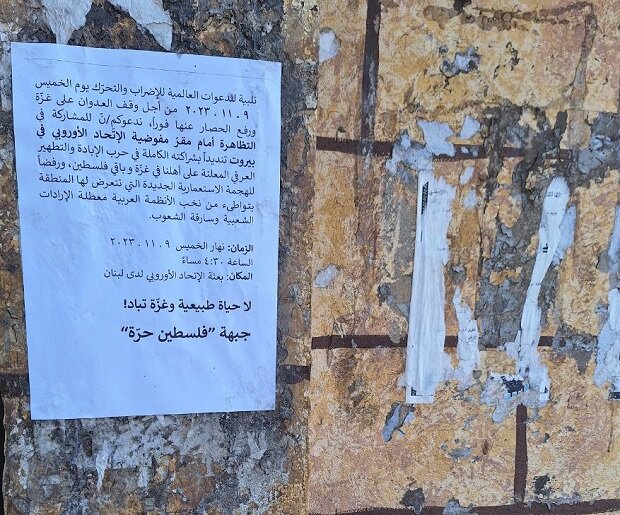 تلبية للدعوات العالمية للإضراب والتحرّك يوم الخميس
٩ .١١ .٢٠٢٣ من أجل وقف العدوان على غزّة
ورفع الحصار عنها فوراً، ندعوكم/نّ للمشاركة في
التظاهرة أمام مقرّ مفوضية الإتّحاد الأوروبي في
بيروت تنديداً بشراكته الكاملة في حرب الإبادة والتطهير
العرقي المعلنة على أهلنا في غزّة و باقي فلسطين، ورفضاً
للهجمة الاستعمارية الجديدة التي تتعرض لها المنطقة
بتواطىء من نخب الأنظمة العربية معطلة الإرادات
الشعبية وسارقة الشعوب.
الزمان: نهار الخميس ٩ .١١ .٢٠٢٣
الساعة ٤:٣٠ مساءً
المكان: بعثة الإتحاد الأوروبي لدى لبنان
لا حياة طبيعية وغزّة تباد!
جبهة ”فلسطين حرّة“